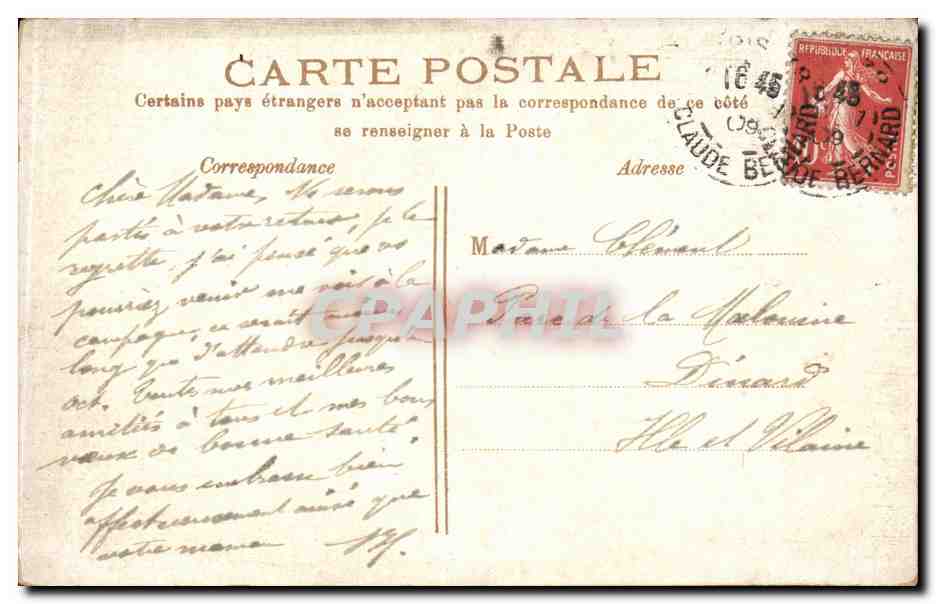 CARTE POSTALE
Certains pays étrangers n'acceptant pas la correspondance de ce côté
se renseigner à la Poste
Correspondance
Adresse
REPUBLIQUE FRANÇAISE
16 45
09
CLAUDE BERNARD
POSTES
Chère Madame, Ns serons
partis à votre retour, je le
regrette, j'ai pensé que vs
pourriez venir me voir à la
campagne, ce serait moins
long que d'attendre jusqu'en
oct. Toutes mes meilleures
amitiés à tous et mes bons
vœux de bonne santé.
Je vous embrasse bien
affectueusement ainsi que
votre maman
Madame Clément
Parc de la Malouine
Dinard
Ille et Vilaine
CPAPHIL